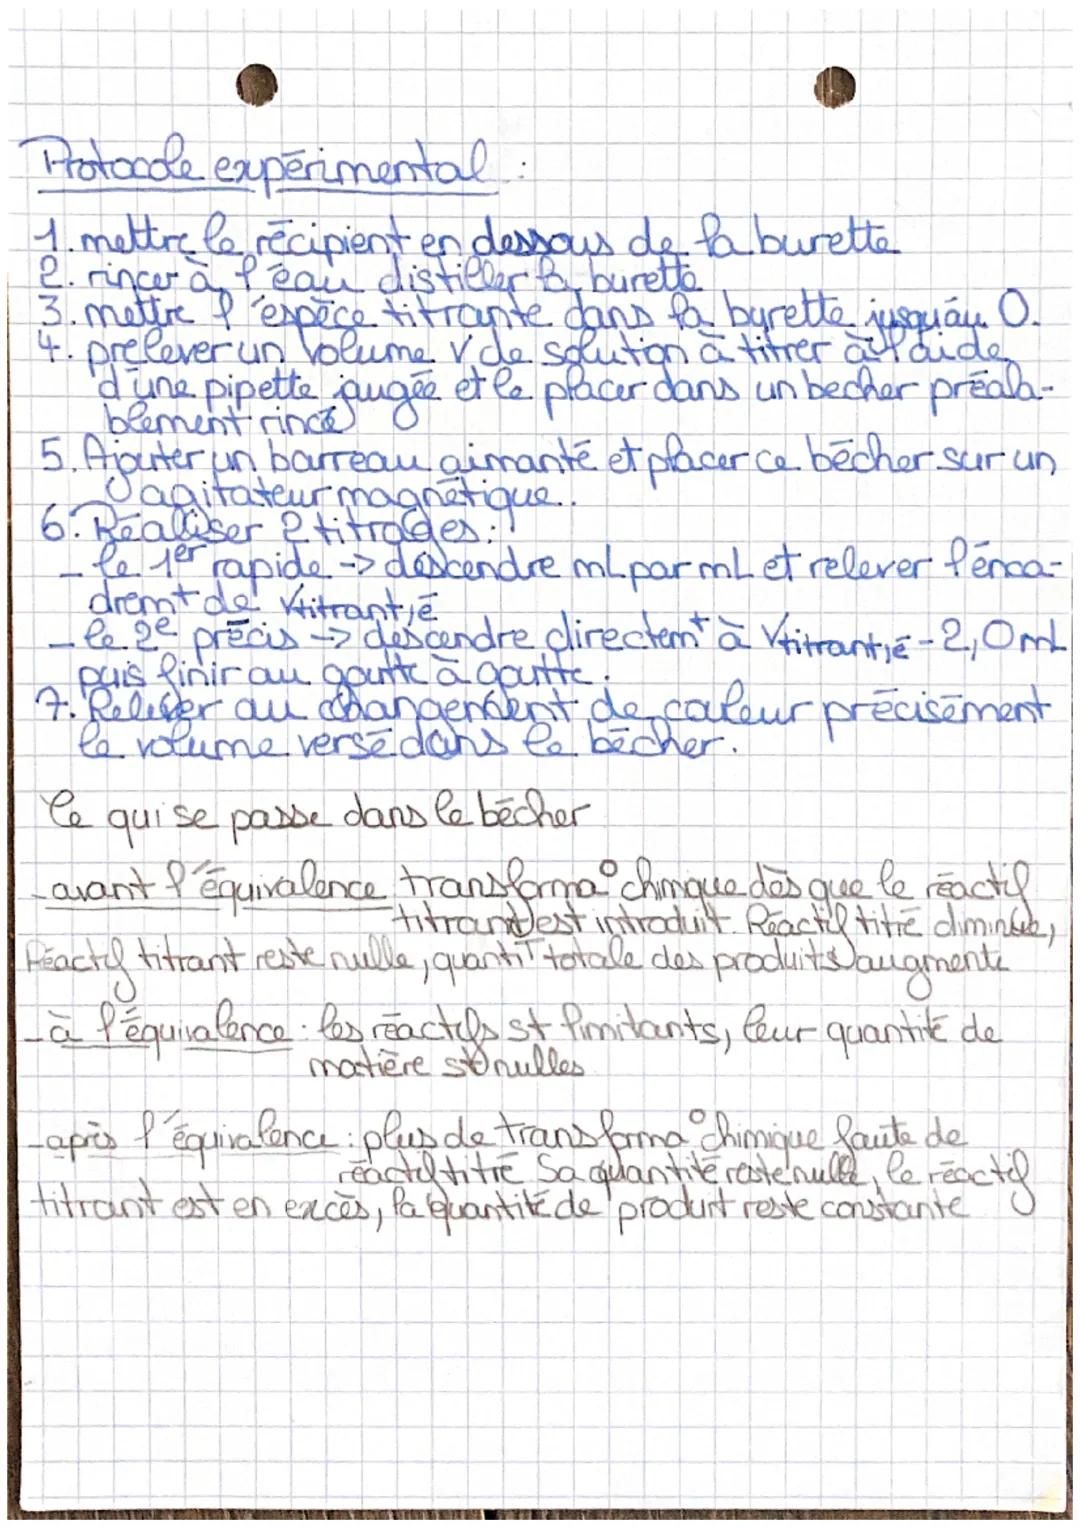 Protocole expérimental :
1. mettre le récipient en dessous de la burette
2. rincer à l'eau distiller la burette
3. mettre l'espèce titrante dans la burette jusqu'au 0.
4. prélever un volume V de solution à titrer à l'aide
d'une pipette jaugée et le placer dans un becher préala-
blement rincé
5. Ajouter un barreau aimanté et placer ce bécher sur un
agitateur magnétique.
6. Réaliser 2 titrages :
- le 1er rapide -> descendre mL par mL et relever l'enca-
dremt de Vtitrant,é
- le 2e précis -> descendre directemt à Vtitrant,é - 2,0 mL
puis finir au goutte à goutte.
7. Relever au changement de couleur précisément
le volume versé dans le bécher.
Ce qui se passe dans le bécher
- avant l'équivalence transforma° chimque dès que le réactif
titrant est introduit. Réactif titré diminue,
Réactif titrant reste nulle, quantiT totale des produits augmente
- à l'équivalence : les réactifs st limitants, leur quantité de
matière st nulles
- après l'équivalence : plus de transforma° chimique faute de
réactif titré Sa quantité reste nulle, le réactif
titrant est en excès, la quantité de produit reste constante